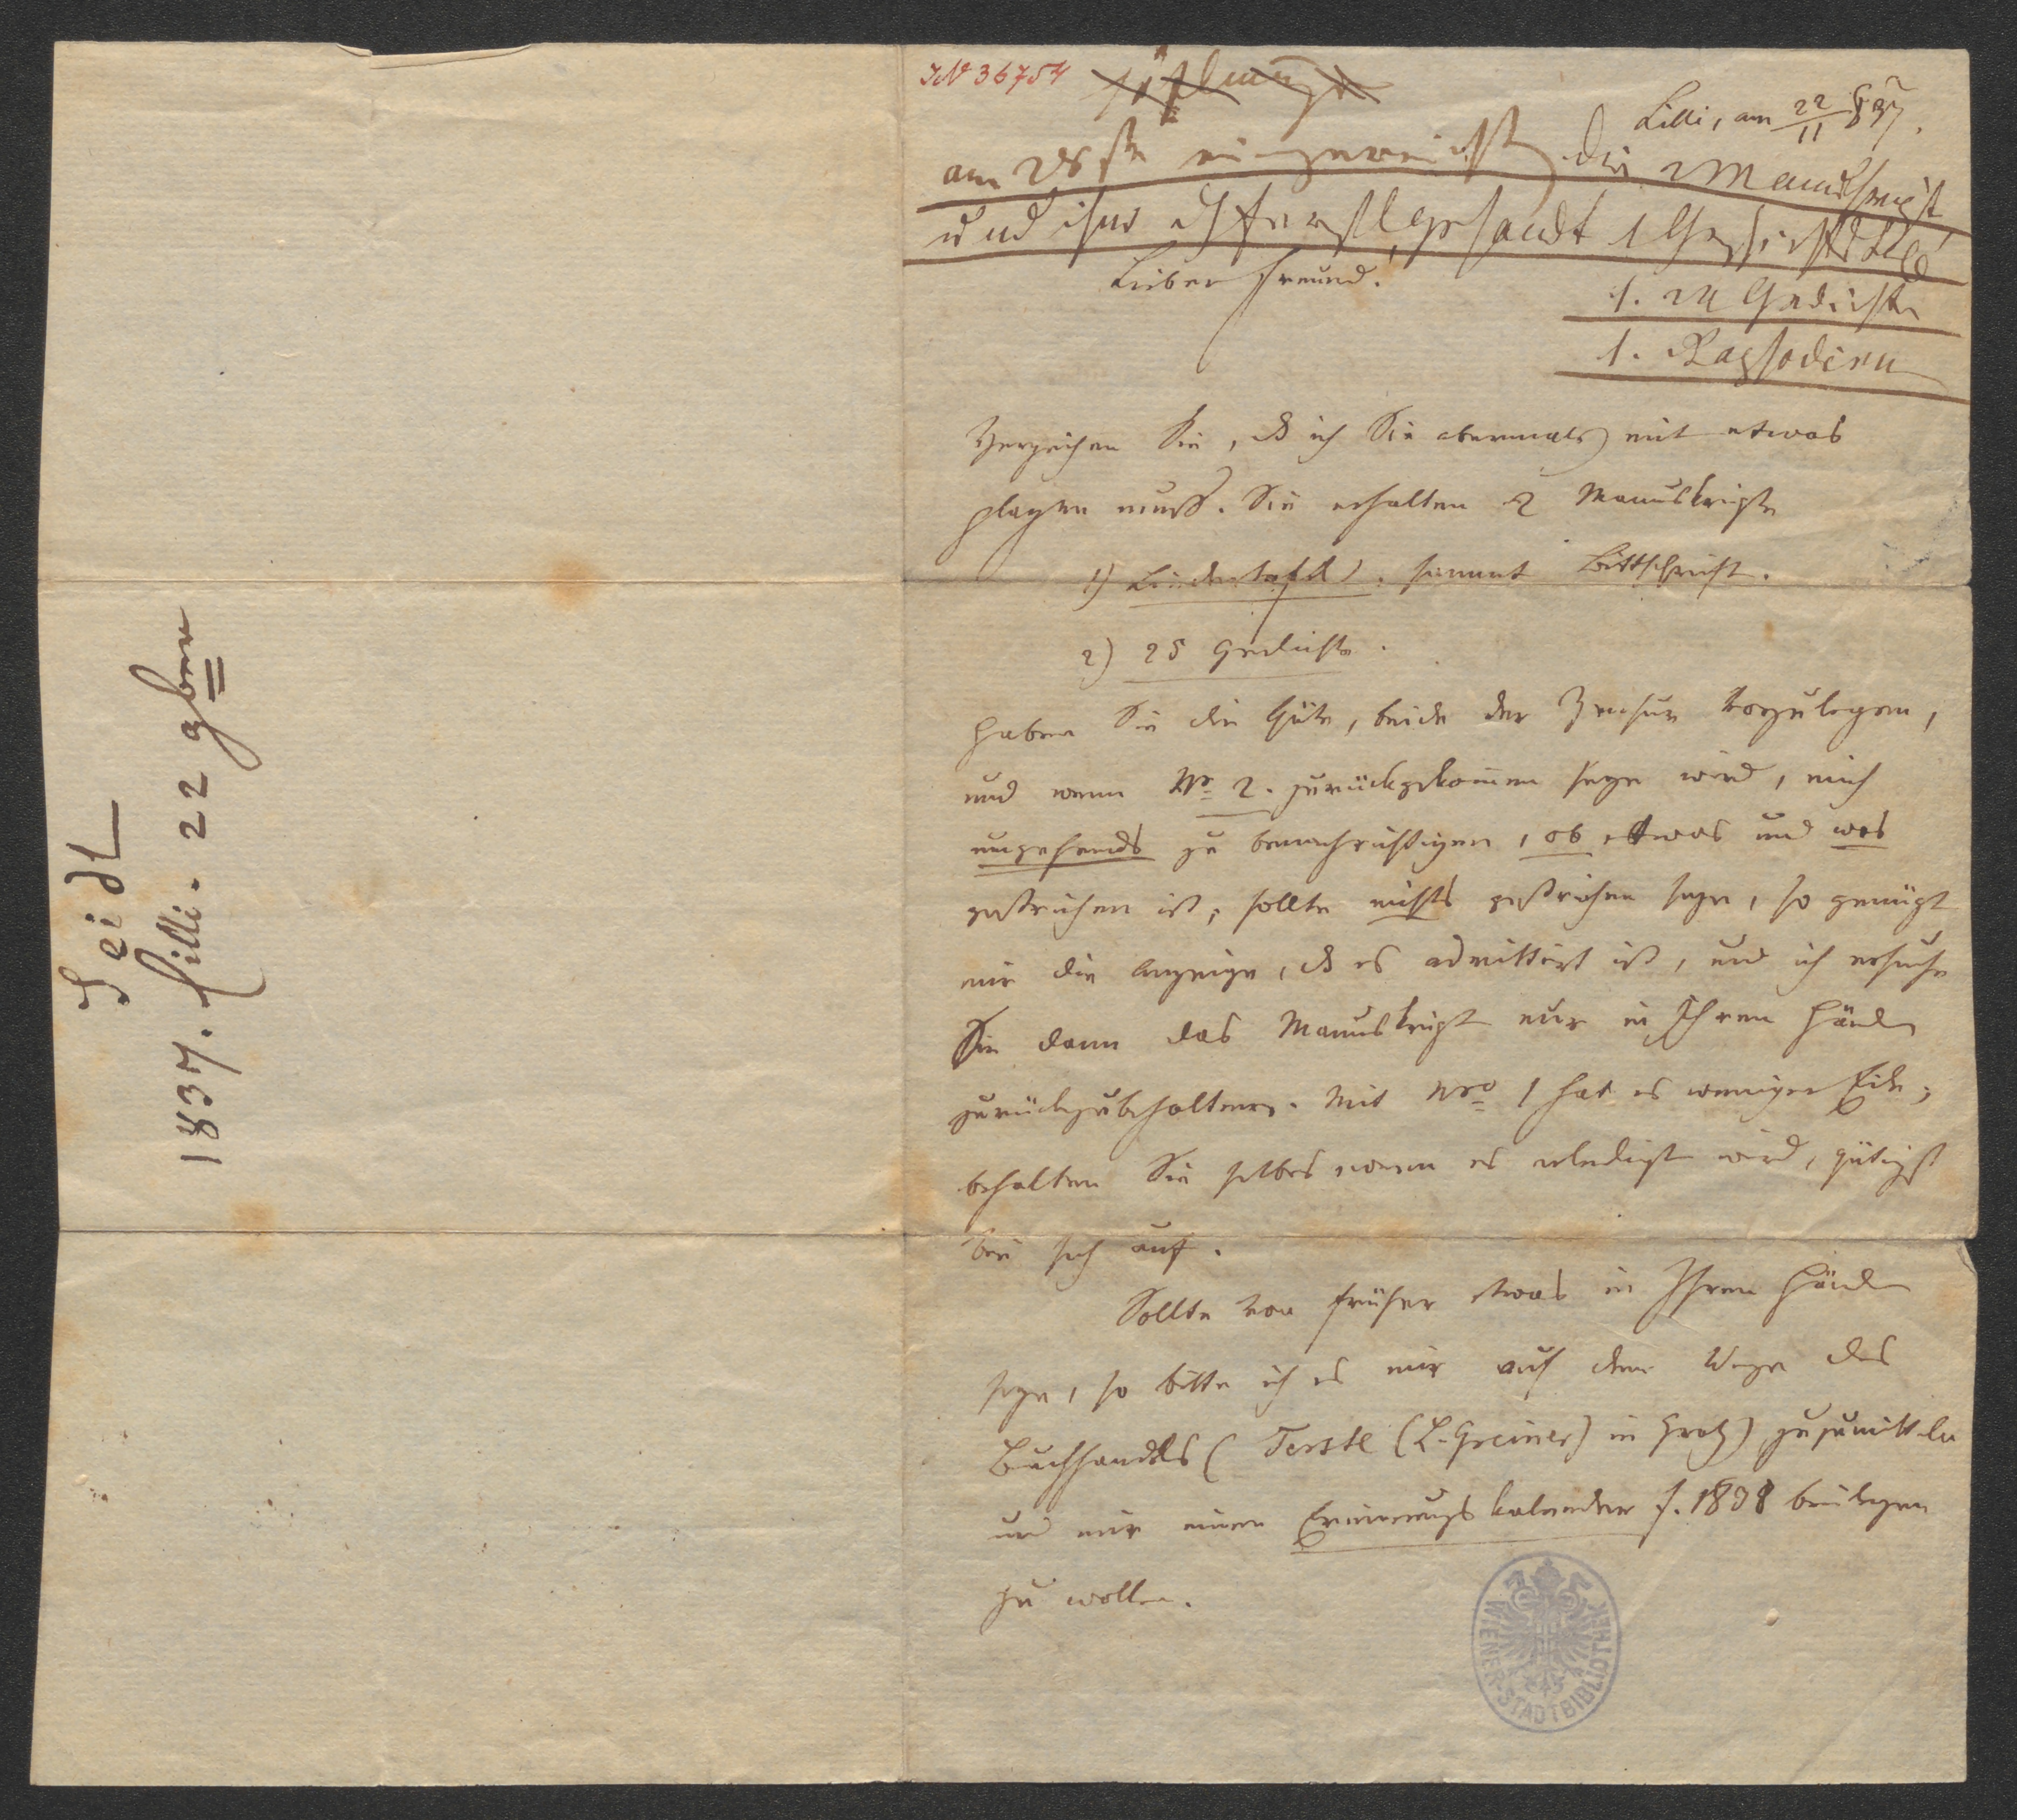 Seidl
1837. Cilli. 22 9ber
IN 36754
Cilli, am 22/11 837.
am 28ten eingereicht die 2 Manuskript
und ihm gesandt 1
Lieber Freund!
1. M Gedichte
1. Rapsodien
Verzeihen Sie, dß ich Sie abermals mit etwas
plagen muß. Sie erhalten 2 Manuskripte
1) Liedertafel, sammt Bittschrift.
2) 25 Gedichte.
Haben Sie die Güte, beide der Zensur vorzulegen,
und wenn Nr. 2. zurückgekom̄en seyn wird, mich
umgehends zu benachrichtigen, ob etwas und was
gestrichen ist; sollte nichts gestrichen seyn, so genügt
mir die Anzeige, dß es admittirt ist, und ich ersuche
Sie dann das Manuskript nur in Ihren Händen
zurückzubehalten. Mit Nro 1 hat es weniger Eile;
behalten Sie selbes wenn es erledigt wird, gütigst
bei sich auf.
Sollte von früher etwas in Ihren Händen
seyn, so bitte ich es mir auf dem Wege des
Buchhandels (Ferstl (L. Greiner) in Gratz) zuzumitteln
und mir einen Erinnerungskalender f. 1838 beilegen
zu wollen.
WIENER STADTBIBLIOTHEK